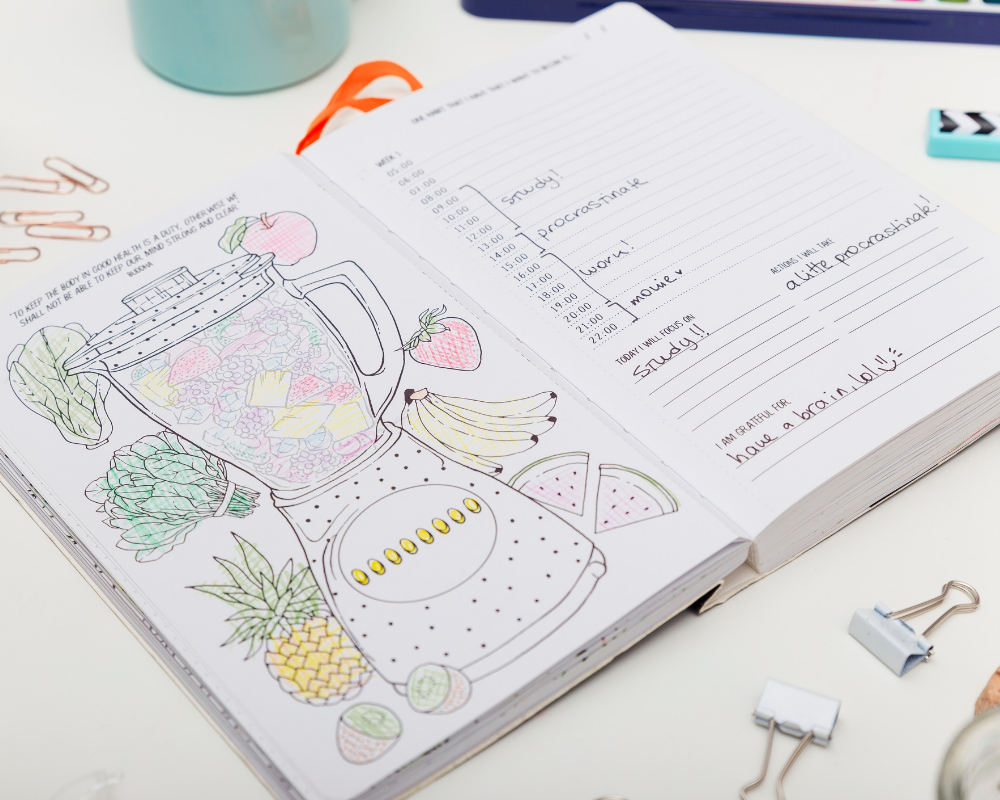 "TO KEEP THE BODY IN GOOD HEALTH IS A DUTY, OTHERWISE WE
SHALL NOT BE ABLE TO KEEP OUR MIND STRONG AND CLEAR."
BUDDHA
ONE HABIT THAT I HAVE THAT I WANT TO
WEEK 1
05:00
06:00
07:00
08:00
09:00
10:00
11:00
12:00
13:00
14:00
15:00
16:00
17:00
18:00
19:00
20:00
21:00
22:00
study!
procrastinate
work!
movie ♥
ACTIONS I WILL TAKE
a little procrastinate!
TODAY I WILL FOCUS ON
Study!!
I AM GRATEFUL FOR
have a brain lol!